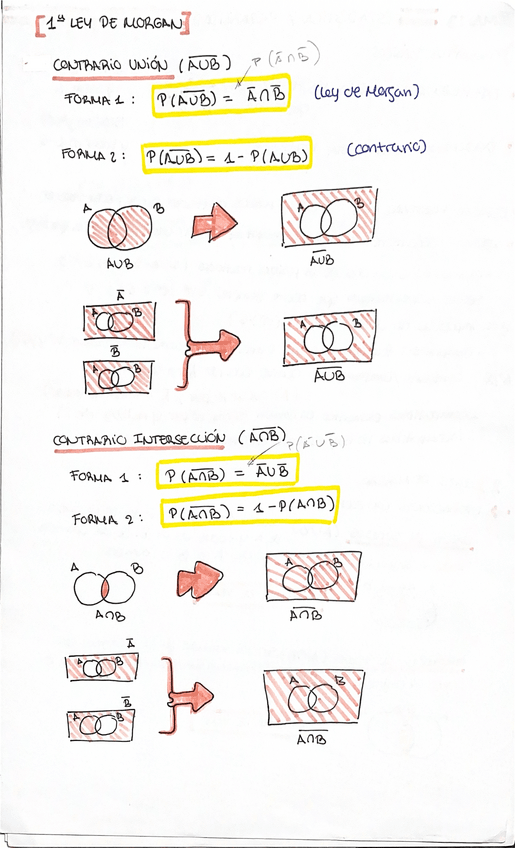 [1ª LEY DE MORGAN]
CONTRARIO UNIÓN (A̅∪̅B̅) P(A̅∩B̅)
FORMA 1: P(A̅∪̅B̅) = A̅∩B̅ (Ley de Morgan)
FORMA 2: P(A̅∪̅B̅) = 1 - P(A∪B) (contrario)
A B A B
A∪B A̅∪̅B̅
A̅
A B
B̅
A B
A B
A̅∪̅B̅
CONTRARIO INTERSECCIÓN (A̅∩̅B̅) P(A̅∪B̅)
FORMA 1: P(A̅∩̅B̅) = A̅∪B̅
FORMA 2: P(A̅∩̅B̅) = 1 - P(A∩B)
A B A B
A∩B A̅∩̅B̅
A̅
A B
B̅
A B
A B
A̅∩̅B̅